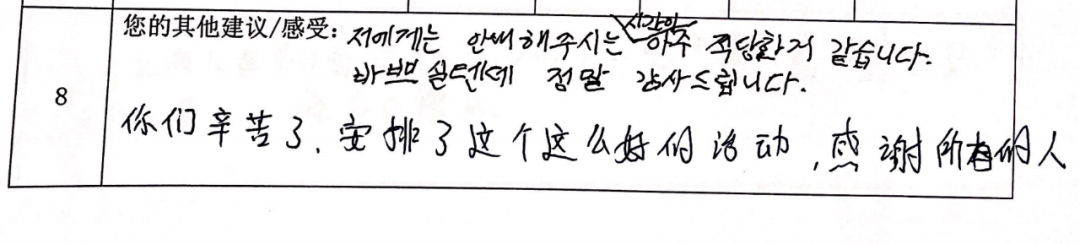 8
您的其他建议/感受: 저에게는 안내해주시는 시간이 아주 적당한거 같습니다.
바쁘실텐데 정말 감사드립니다.
你们辛苦了、安排了这个这么好的活动,感谢所有的人